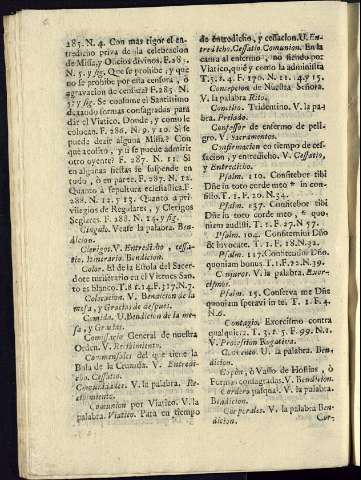 283. N. 4. Con màs rigor el en-
tredicho priva de la celebracion
de Missa, y Oficios divinos. F. 283.
N. 5. y sig. Que se prohibe, y que
no se prohibe por esta censura, ò
cessacion de general F. 285. N.
y sig. Se consume el Santissimo
dexando formas consagradas para
dàr el Viatico. Donde, y como le
colocan. F. 286. N. 9. y 10. Si se
puede decir alguna Missa? Con
que acosito, y si se puede admitir
otro oyente? F. 287. N. 11. Si
en algunas fiestas se suspende en
todo, ò en parte. F. 287. N. 12.
Quanto à sepultura eclesiastica. F.
288. N. 12. y 13. Quanto à pri-
vilegios de Regulares, y Clerigos
Seglares. F. 288. N. 14. y sig.
Cingulo. Vease la palabra. Ben-
dicion.
Clerigos. V. Entredicho, cessa-
tio, Itinerario. Bendicion.
Color. El de la Estola del Sacer-
dote turiferario en el Viernes San-
to es blanco. T. 1. t. 14. F. 317. N. 7.
Colocacion. V. Bendicion de la
mesa, y Gracias despues.
Comida. V. Bendicion de la me-
sa, y Gracias.
Comissario General de nuestra
Orden. V. Recibimiento.
Commensales del que tiene la
Bula de la Cruzada. V. Entredi-
cho. Cessatio.
Comunidades. V. la palabra. Re-
cibimiento.
Comunion por Viatico. V. la
palabra. Viatico. Para en tiempo
de entredicho, y cessacion. V. En-
tredicho. Cessatio. Comunion. En la
cama al enfermo, no siendo por
Viatico, què y como la administra
T. 1. t. 4. F. 170. N. 11. 14. y 15.
Concepcion de Nuestra Señora.
V. la palabra Rito.
Concilio. Tridentino. V. la pa-
bra. Prelado.
Confessor de enfermo de peli-
gro. V. Sacramentos.
Confirmacion en tiempo de ces-
sacion, y entredicho. V. Cessatio,
y Entredicho.
Psalm. 110. Confitebor tibi
Dñe in toto corde meo * in con-
silio. T. 1. F. 20. N. 34.
Psalm. 137. Confitebor tibi
Dñe in toto corde meo, * quo-
niam audisti. T. 1. F. 27. N. 57.
Psalm. 104. Confitemini Dño
& invocate. T. 1. F. 18. N. 32.
Psalm. 117. Confitemini Dño.
quoniam bonus. T. 1. F. 22. N. 39.
Conjuros. V. la palabra. Exor-
cismos.
Psalm. 15. Conserva me Dñe
quoniam speravi in te. T. 1. F. 4.
N. 6.
Contagio. Exorcismo contra
qualquiera. T. 3. t. 5. F. 99. N. 1.
V. Procession Rogativa.
Convento. V. la palabra. Ben-
dicion.
Copòn, ò Vasso de Hostias, ò
Formas consagradas. V. Bendicion.
Cordero pasqual. V. la palabra.
Bendicion.
Corporales. V. la palabra Ben-
dicion.
Cor-